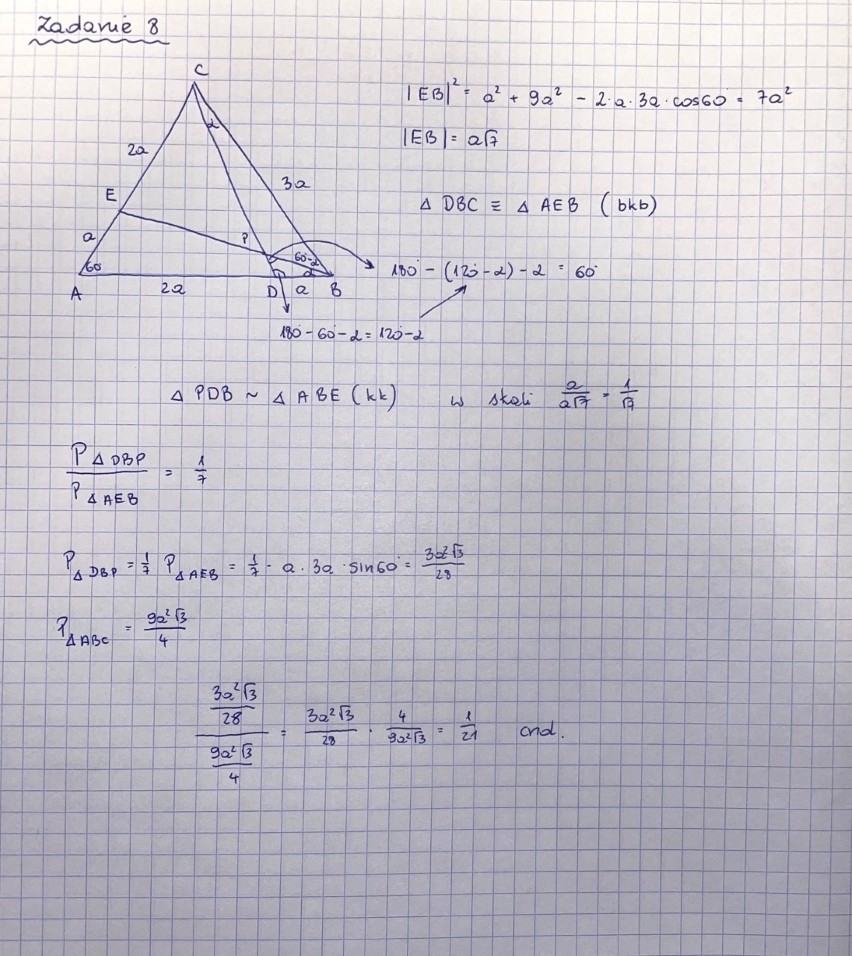 Zadanie 8
C
α
2a
3a
E
a
P
60-α
60°
α
A
2a
D
a
B
|EB|² = a² + 9a² - 2·a·3a·cos60 = 7a²
|EB| = a√7
△ DBC ≡ △ AEB (bkb)
180° - (120° - α) - α = 60°
180° - 60° - α = 120° - α
△ PDB ~ △ ABE (kk) w skali a/a√7 = 1/√7
P△DBP / P△AEB = 1/7
P△DBP = 1/7 P△AEB = 1/7 · a · 3a · sin60° = 3a²√3/28
P△ABC = 9a²√3/4
(3a²√3/28) / (9a²√3/4) = 3a²√3/28 · 4/9a²√3 = 1/21 cnd.